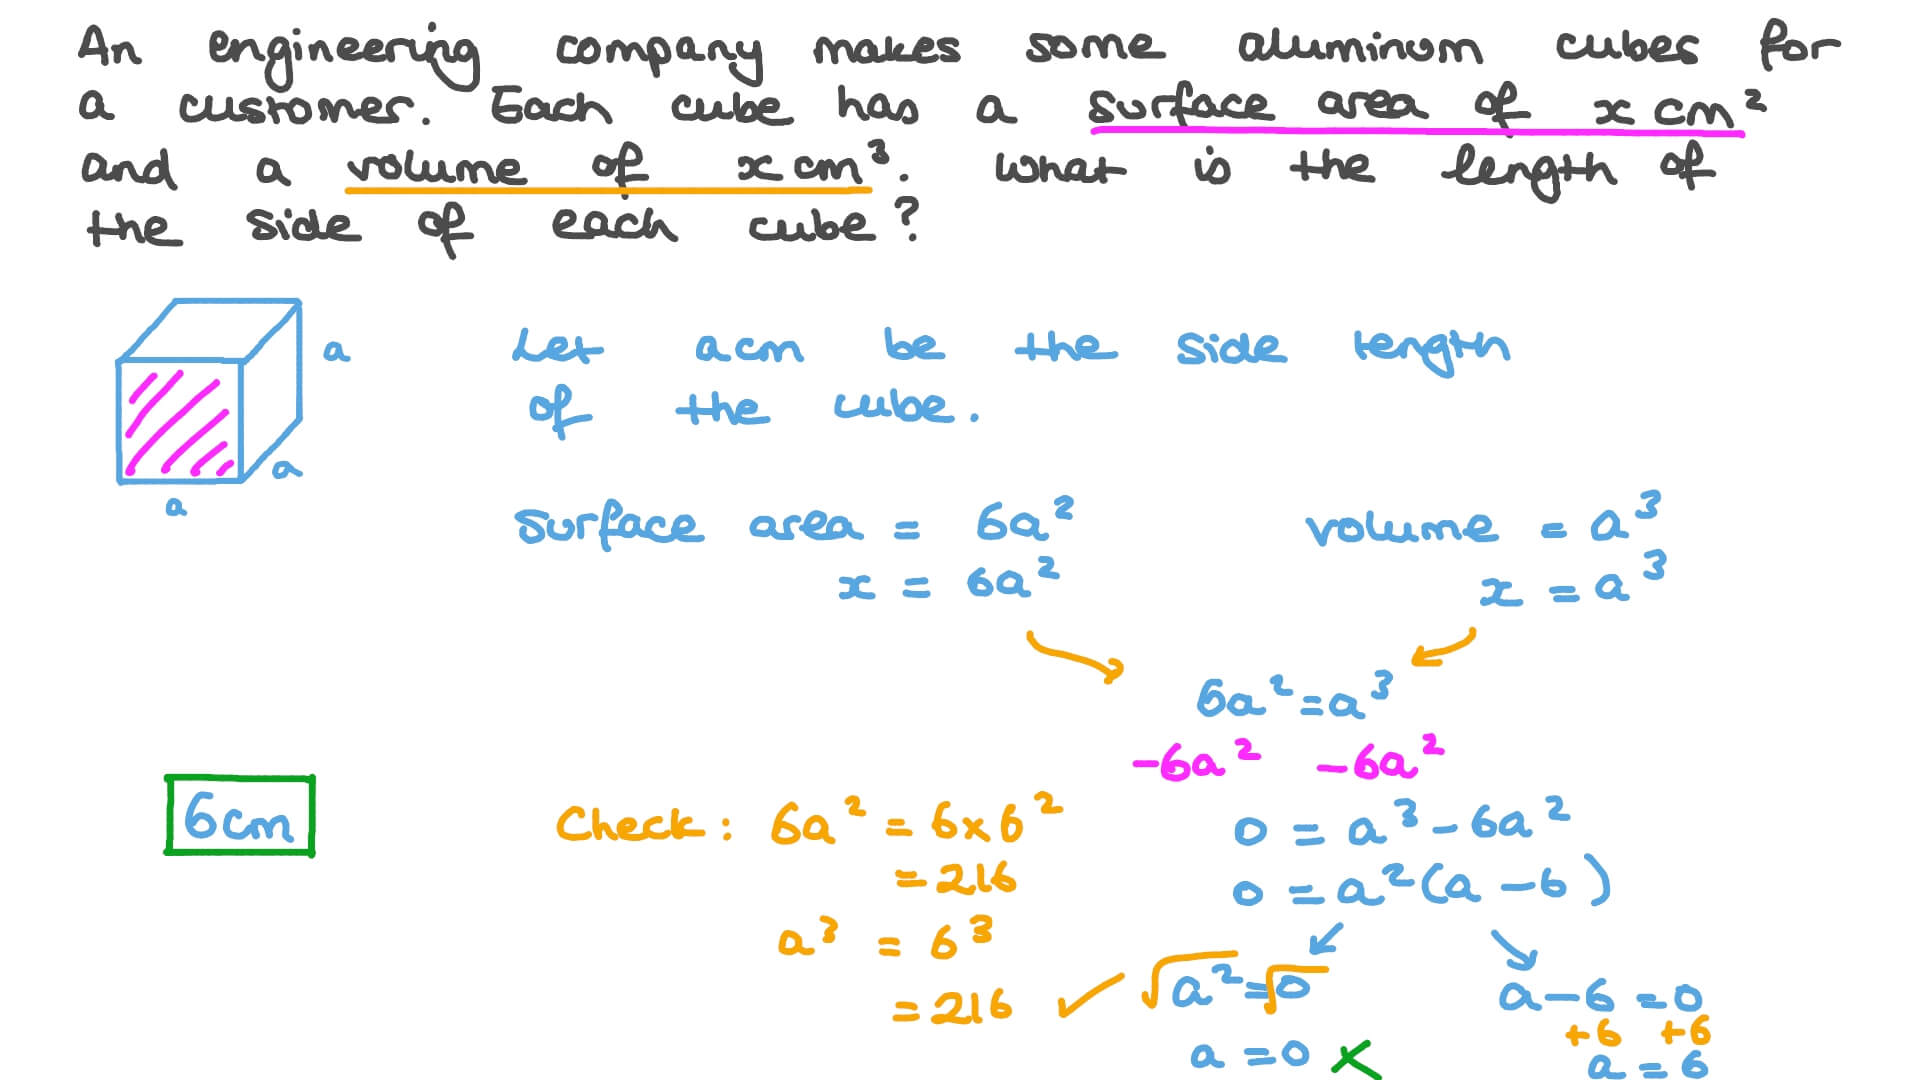 An engineering company makes some aluminum cubes for
a customer. Each cube has a surface area of x cm²
and a volume of x cm³. What is the length of
the side of each cube?
a
a
a
Let a cm be the side length
of the cube.
Surface area = 6a²
x = 6a²
volume = a³
x = a³
6a² = a³
-6a² -6a²
0 = a³ - 6a²
0 = a²(a - 6)
√a² = √0
a = 0 ×
a - 6 = 0
+6 +6
a = 6
Check: 6a² = 6 × 6²
= 216
a³ = 6³
= 216 ✓
6cm